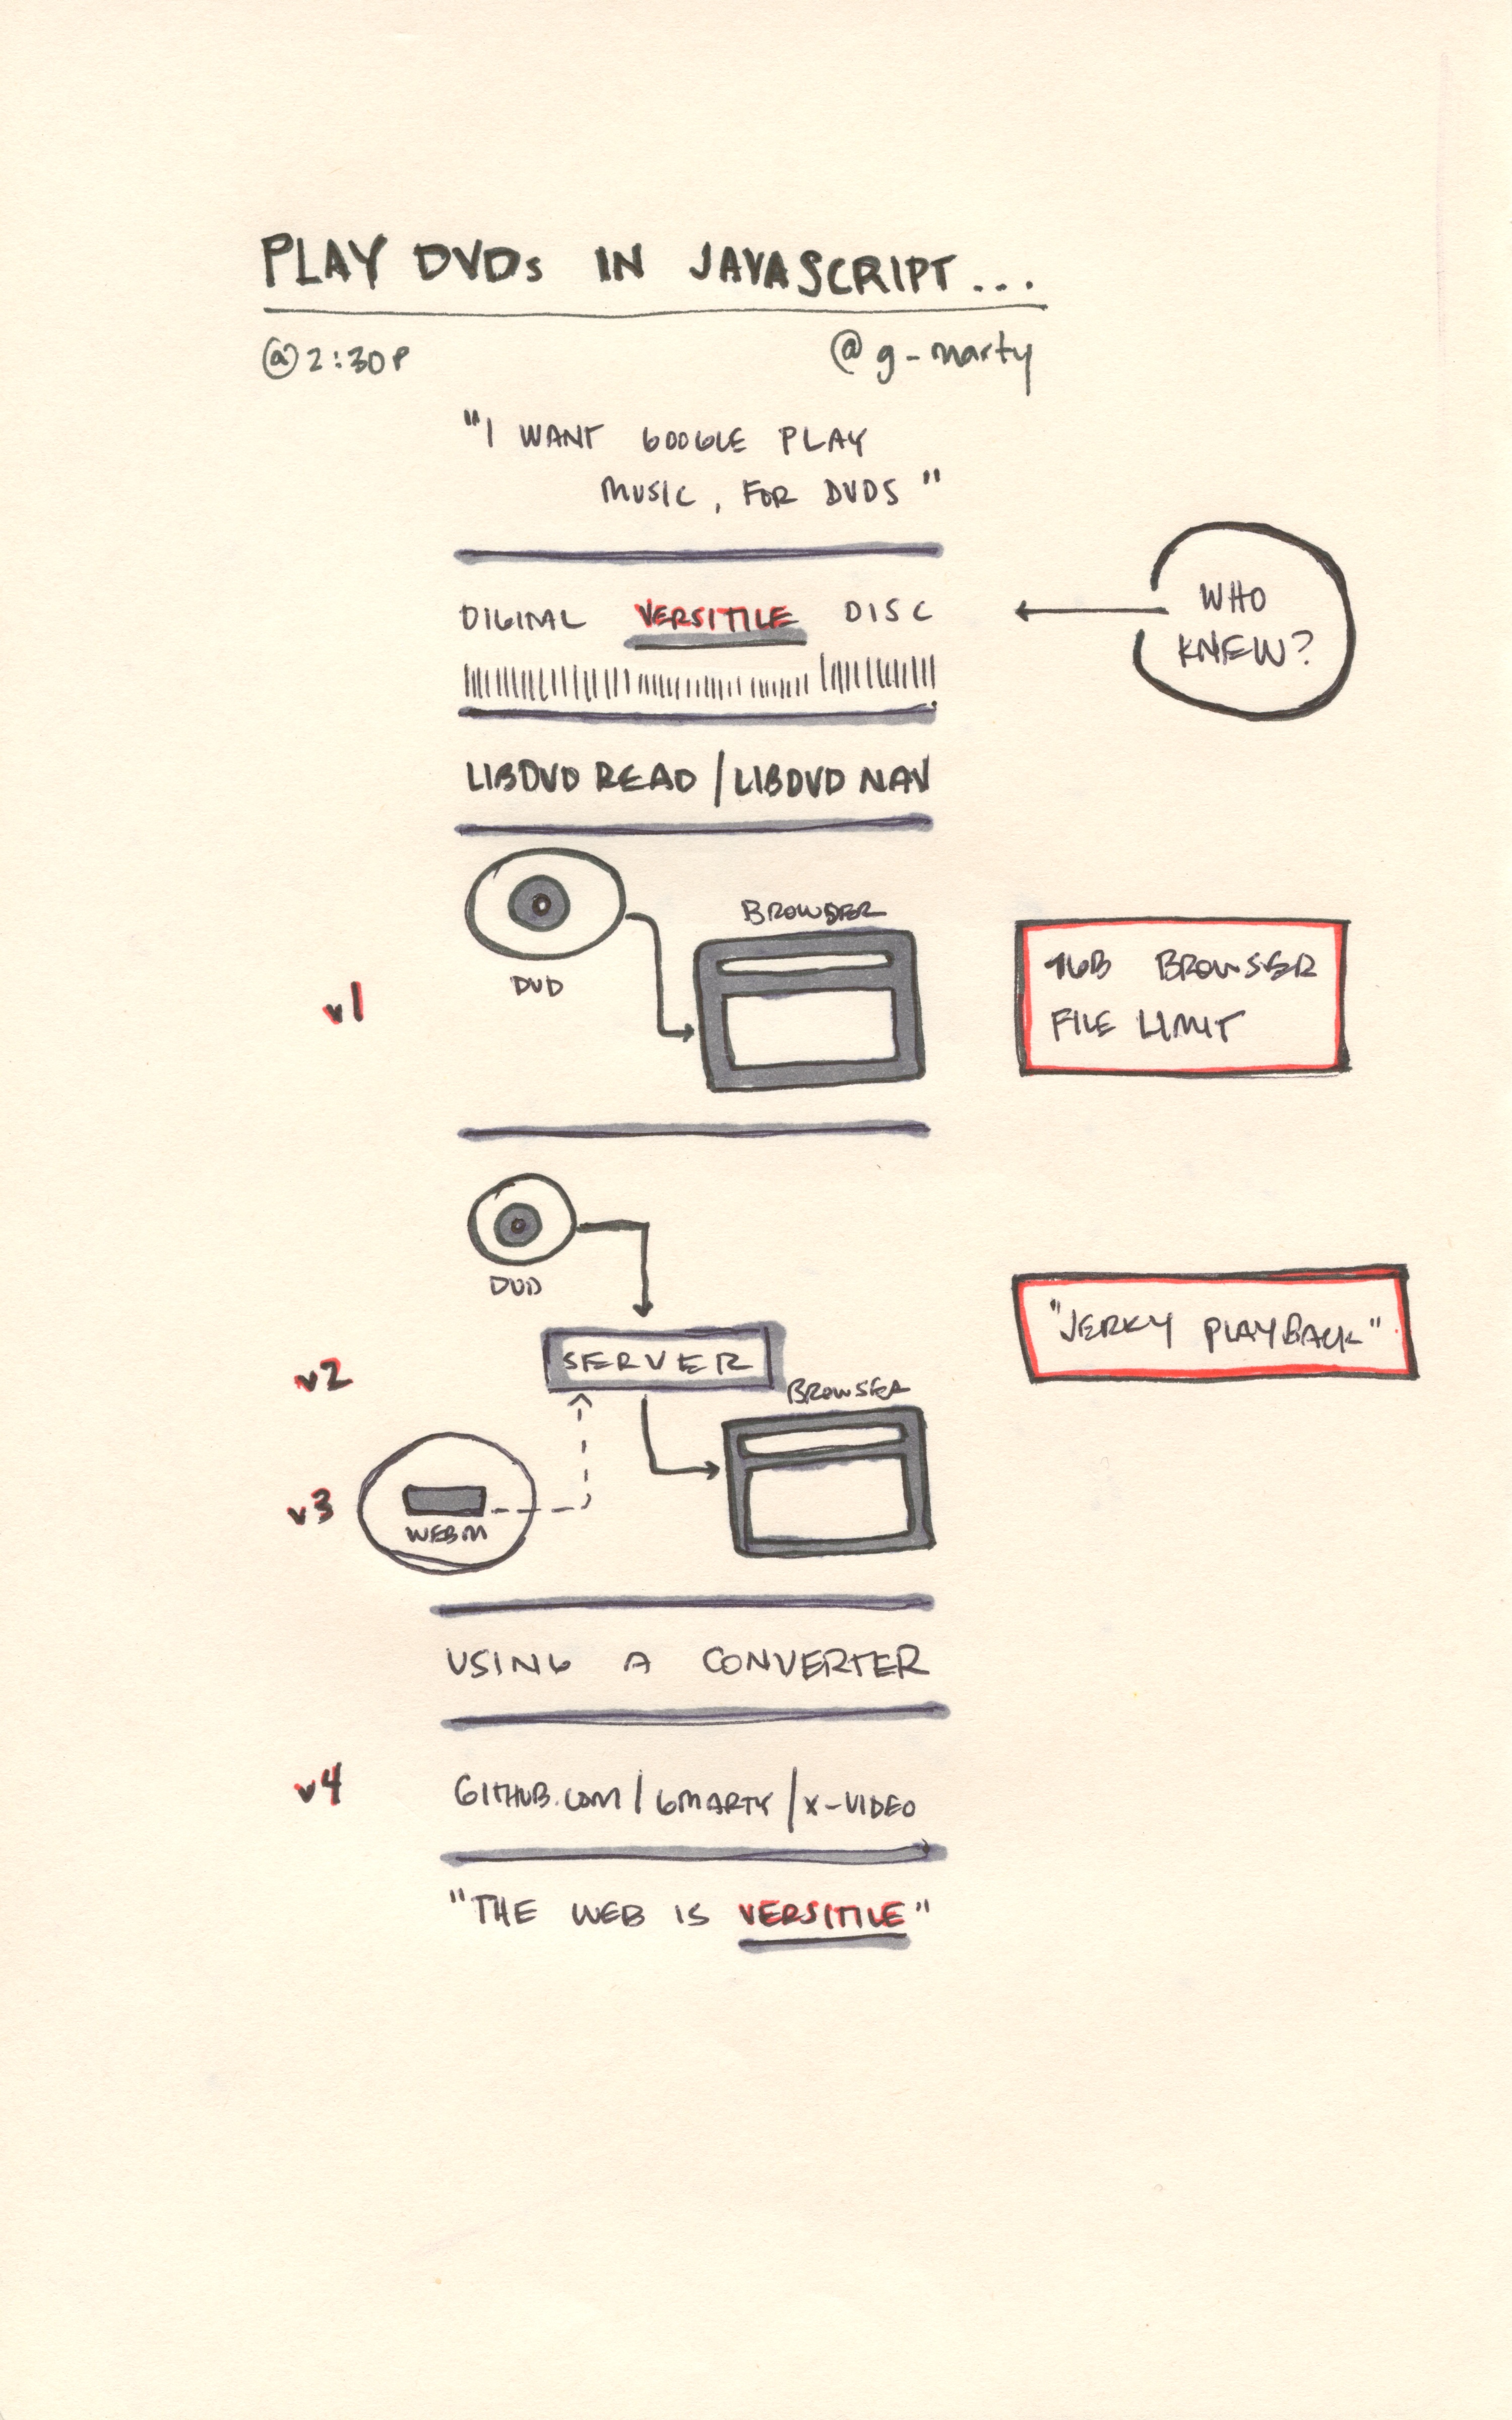 PLAY DVDs IN JAVASCRIPT...
@2:30P
@g-marty
"I WANT GOOGLE PLAY
MUSIC, FOR DVDS"
DIGITAL VERSITILE DISC
WHO
KNEW?
LIBDVD READ / LIBDVD NAV
v1
DVD
BROWSER
1GB BROWSER
FILE LIMIT
DVD
v2
SERVER
BROWSER
"JERKY PLAYBACK"
v3
WEBM
USING A CONVERTER
v4
GITHUB.COM/GMARTY/X-VIDEO
"THE WEB IS VERSITILE"